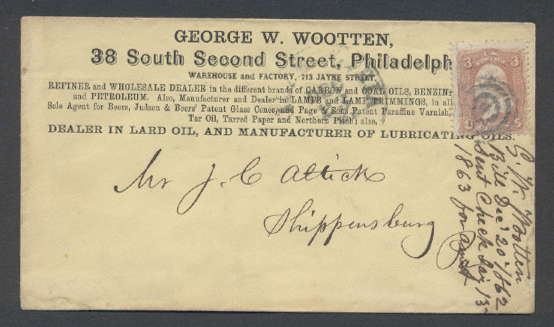 GEORGE W. WOOTTEN,
38 South Second Street, Philadelph
WAREHOUSE and FACTORY, 213 JAYNE STREET.
REFINER and WHOLESALE DEALER in the different brands of CARBON and COAL OILS, BENZIN
and PETROLEUM. Also, Manufacturer and Dealer in LAMPS and LAMP TRIMMINGS, in all
Sole Agent for Beers, Judson & Beers' Patent Glass Cones, and Page & Sons Patent Paraffine Varnish,
Tar Oil, Tarred Paper and Northern Pitch; also,
DEALER IN LARD OIL, AND MANUFACTURER OF LUBRICATING OILS.
3
Mr J. C Altick
Shippensburg
G. W. Wootten
Bill Decr 20 1862
Sent Check Jay 13
1863 for